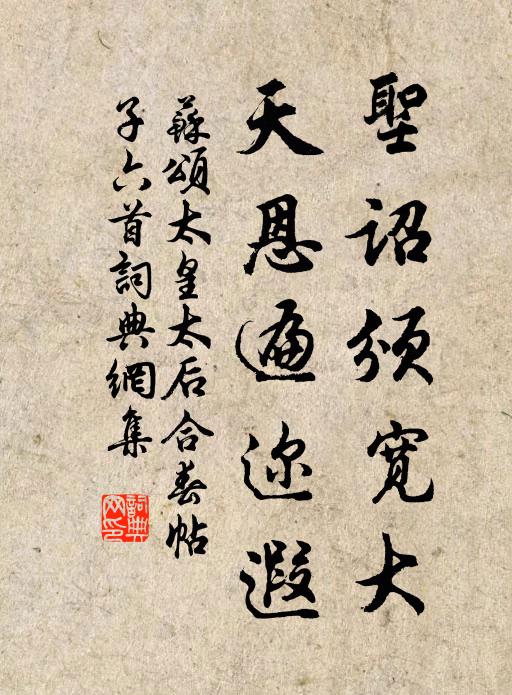 聖詔頒寬大
天恩遍邇遐
蘇頌太皇太后合春帖
子六首詞典網集
詞典網印